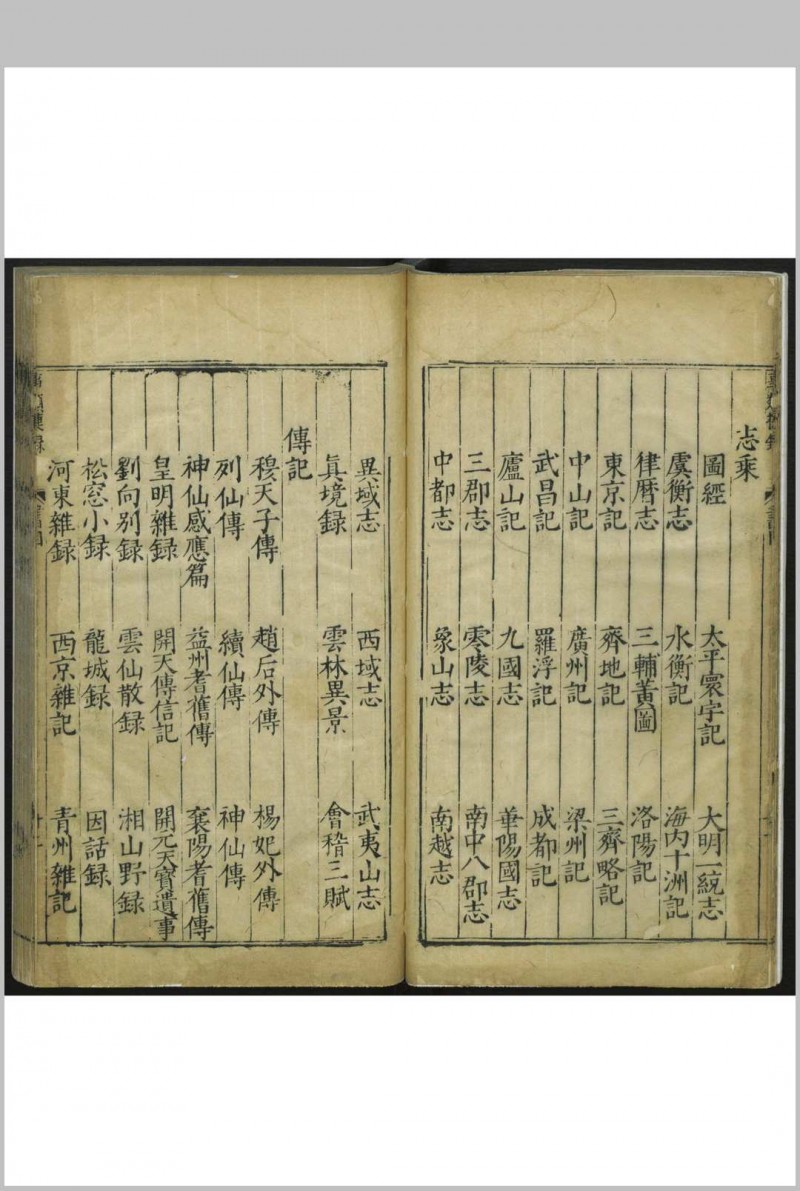 志乘
圖經 太平寰宇記 大明一統志
虞衡志 水衡記 海内十洲記
律曆志 三輔黃圖 洛陽記
東京記 齊地記 三齊略記
中山記 廣州記 梁州記
武昌記 羅浮記 成都記
廬山記 九國志 華陽國志
三郡志 零陵志 南中八郡志
中都志 象山志 南越志
異域志 西域志 武夷山志
眞境録 雲林異景 會稽三賦
傳記
穆天子傳 趙后外傳 楊妃外傳
列仙傳 續仙傳 神仙傳
神仙感應篇 益州耆舊傳 襄陽耆舊傳
皇明雜録 開天傳信記 開元天寶遺事
劉向别録 雲仙散録 湘山野録
松窓小録 龍城録 因話録
河東雜録 西京雜記 青州雜記